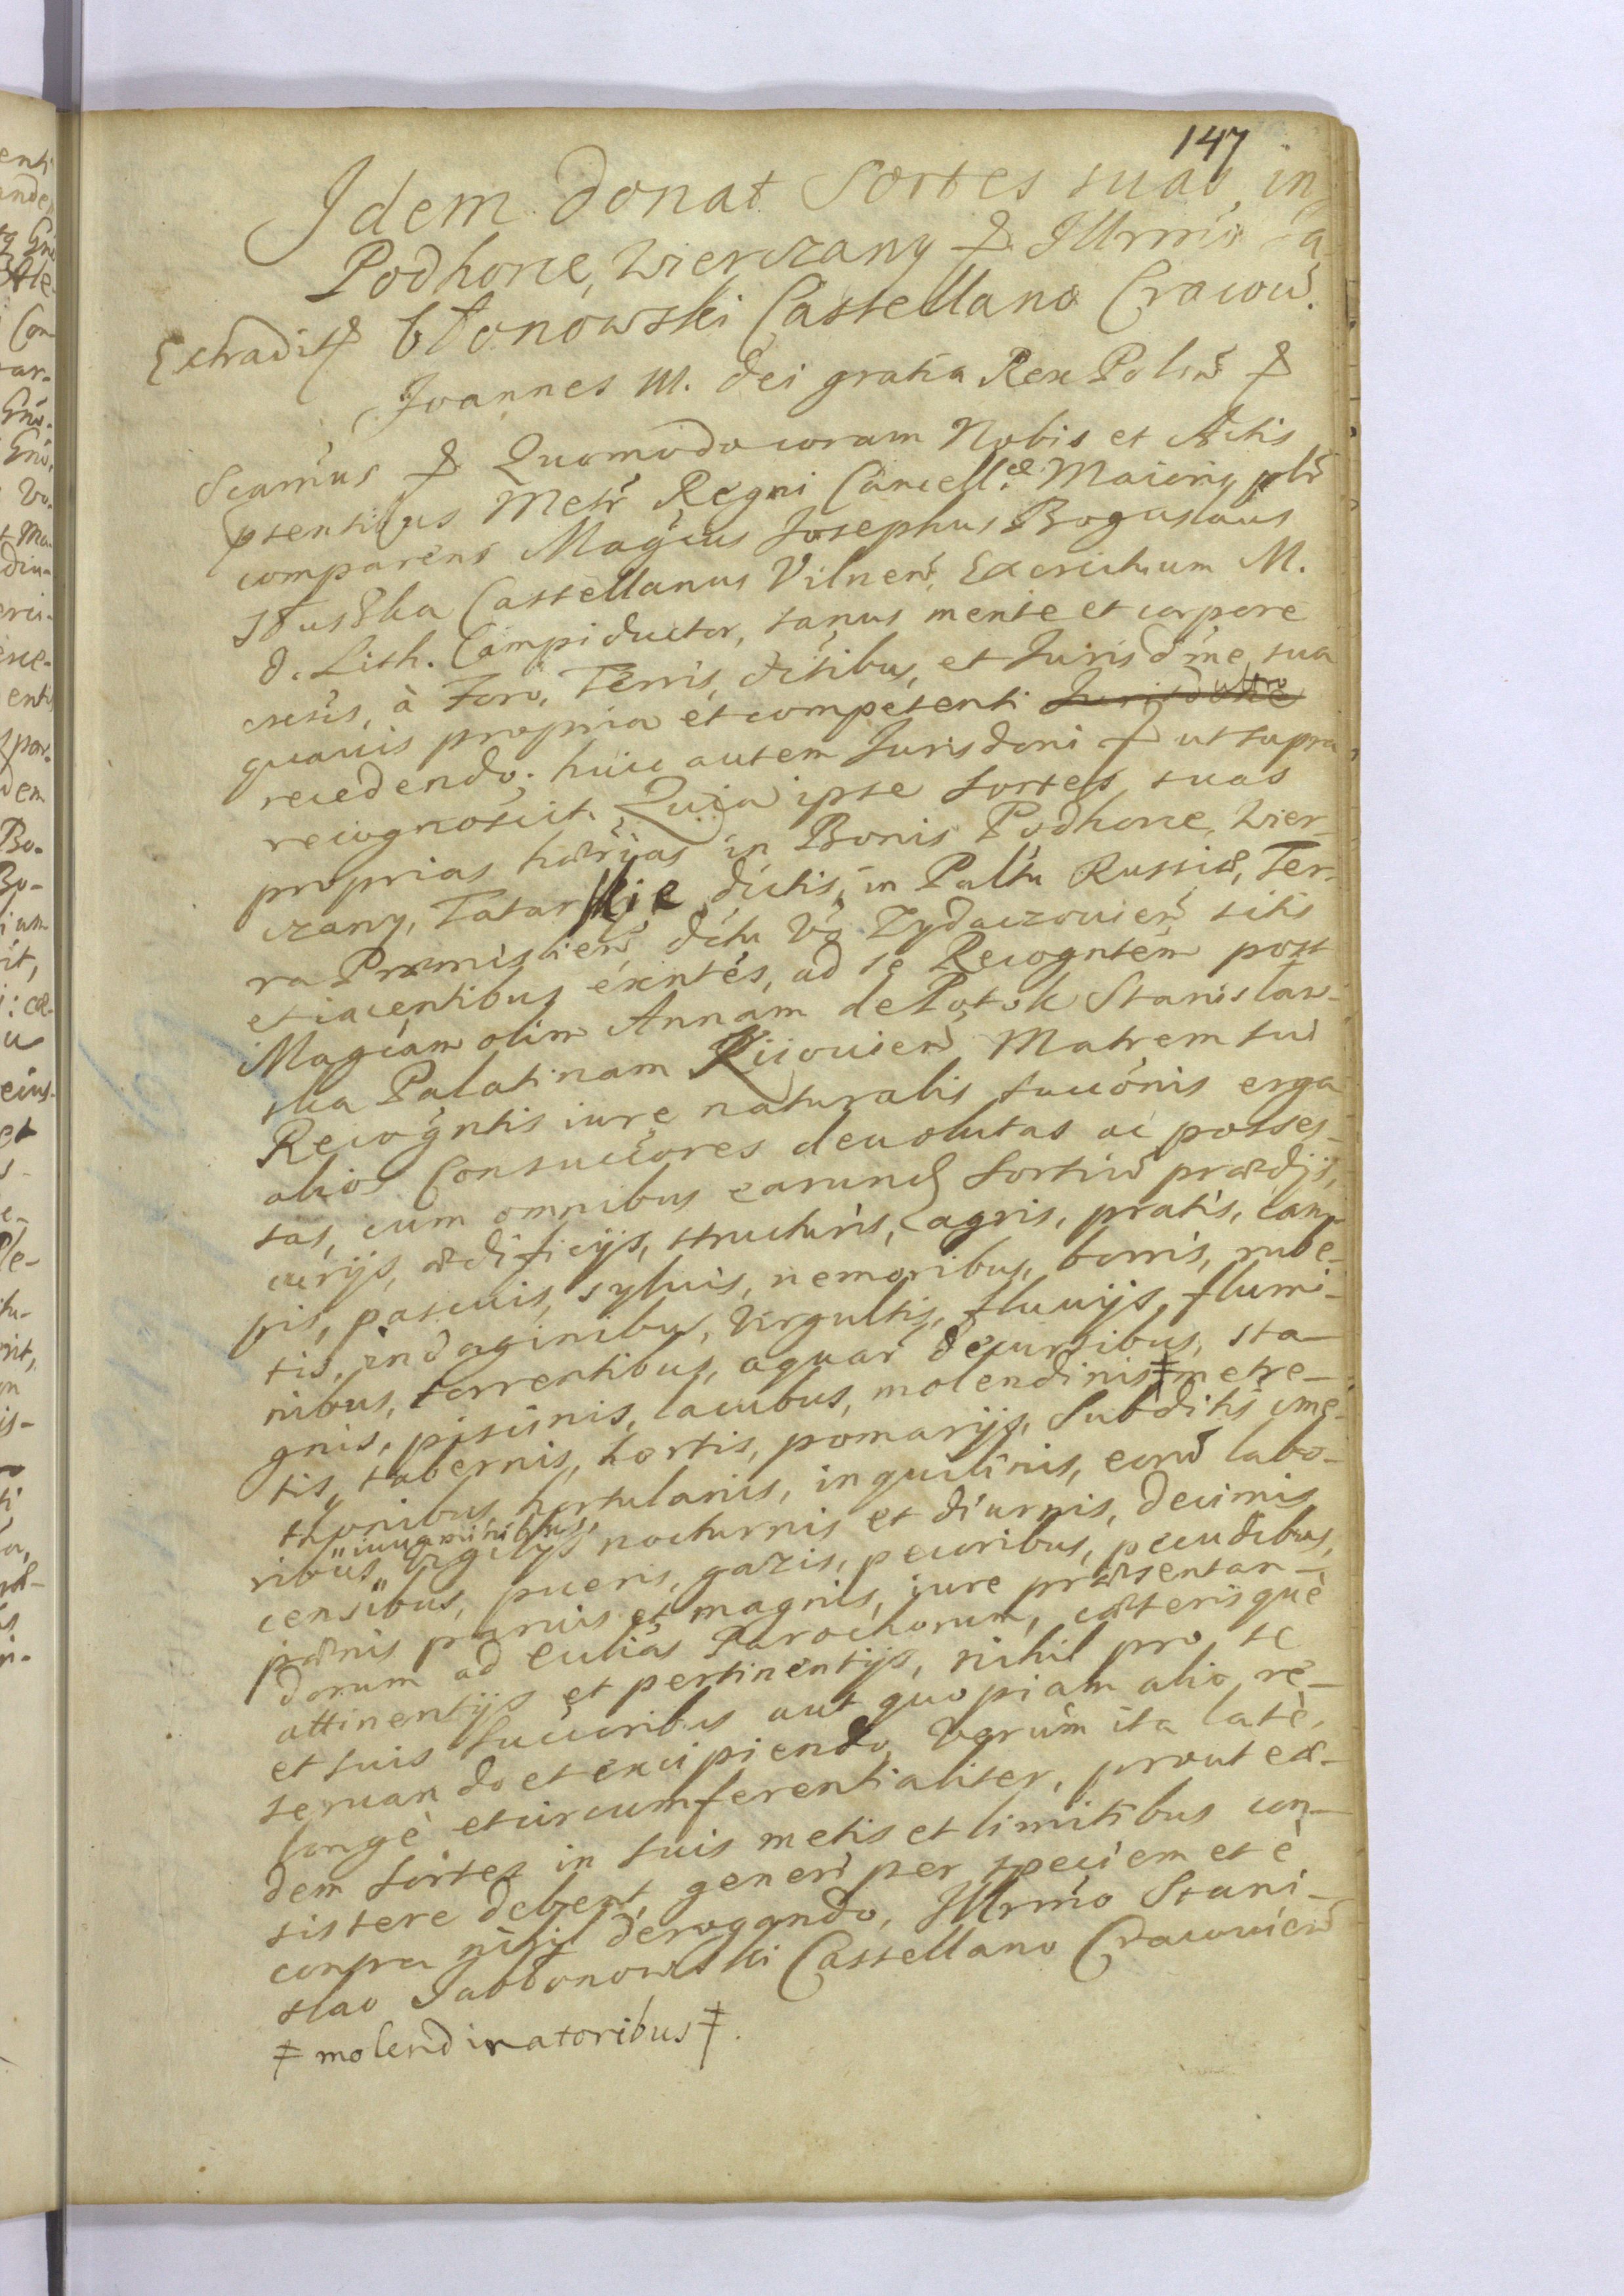 147
Idem donat Sortes suas in
Podhorce, Wierczany &. Illrmo Ja
Extradit& błonowski Castellano Cracou.
Joannes III. Dei gratia Rex Polon &
Scamus & Quomodo coram Nobis et Actis
ptentibus Metr Regni Cancell.æ Maioris plr
comparens Magcus Josephus Boguslaus
Słuszka Castellanus Vilnen, Exercituum M.
D. Lith. Campiductor, sanus mente et corpore
exns, à Foro, Terris, dctibus, et Jurisdone sua
quavis propria et competenti ultro
recedendo, huic autem Jurisdoni & ut supra
recognovit. Quia ipse sortes suas
proprias hærias in Bonis Podhorce, Wier-
czany, Tatarskie dictis, in Paltu Russiæ, Ter-
ra Præmislien, dctu Vo Zydaczouien sitis
et iacentibus exntes, ad se Recogntem post
Magcam olim Annam de Potok Stanisław-
ska Palatinam Kiiouien Matrem sui
Recogntis iure naturalis succonis erga
alios Consuccores deuolutas ac posses-
sas, cum omnibus earund sortiu prædijs,
curijs, ædificijs, structuris, agris, pratis, cam-
pis, pascuis, syluis, nemoribus, borris, rube-
tis, indaginibus, Virgultis, fluuijs, flumi-
nibus, torrentibus, aquar decursibus, sta-
gnis, piscinis, lacubus, molendinis ‡ metre-
tis, tabernis, hortis, pomarijs, Subditis cme-
thonibus, hortulanis, inquilinis, eoru labo-
"iuuaminibus,
ribus" Vigilijs nocturnis et diurnis, decimis
censibus, pueris, gazis, pecoribus, pecudibus,
pænis paruis et magnis, iure præsentan-
dorum ad Ecclias Parochorum, cæterisque
attinentijs et pertinentijs, nihil pro se
et suis succoribus aut quopiam alio re-
seruando et excipiendo, Verum ita late,
longè et circumferentialiter, prout eæ-
dem sortes in suis metis et limitibus con-
sistere debent, generi per speciem et è
contra nihil derogando, Illrmo Stani-
slao Jabłonowski Castellano Cracouien
‡ molendinatoribus ‡.